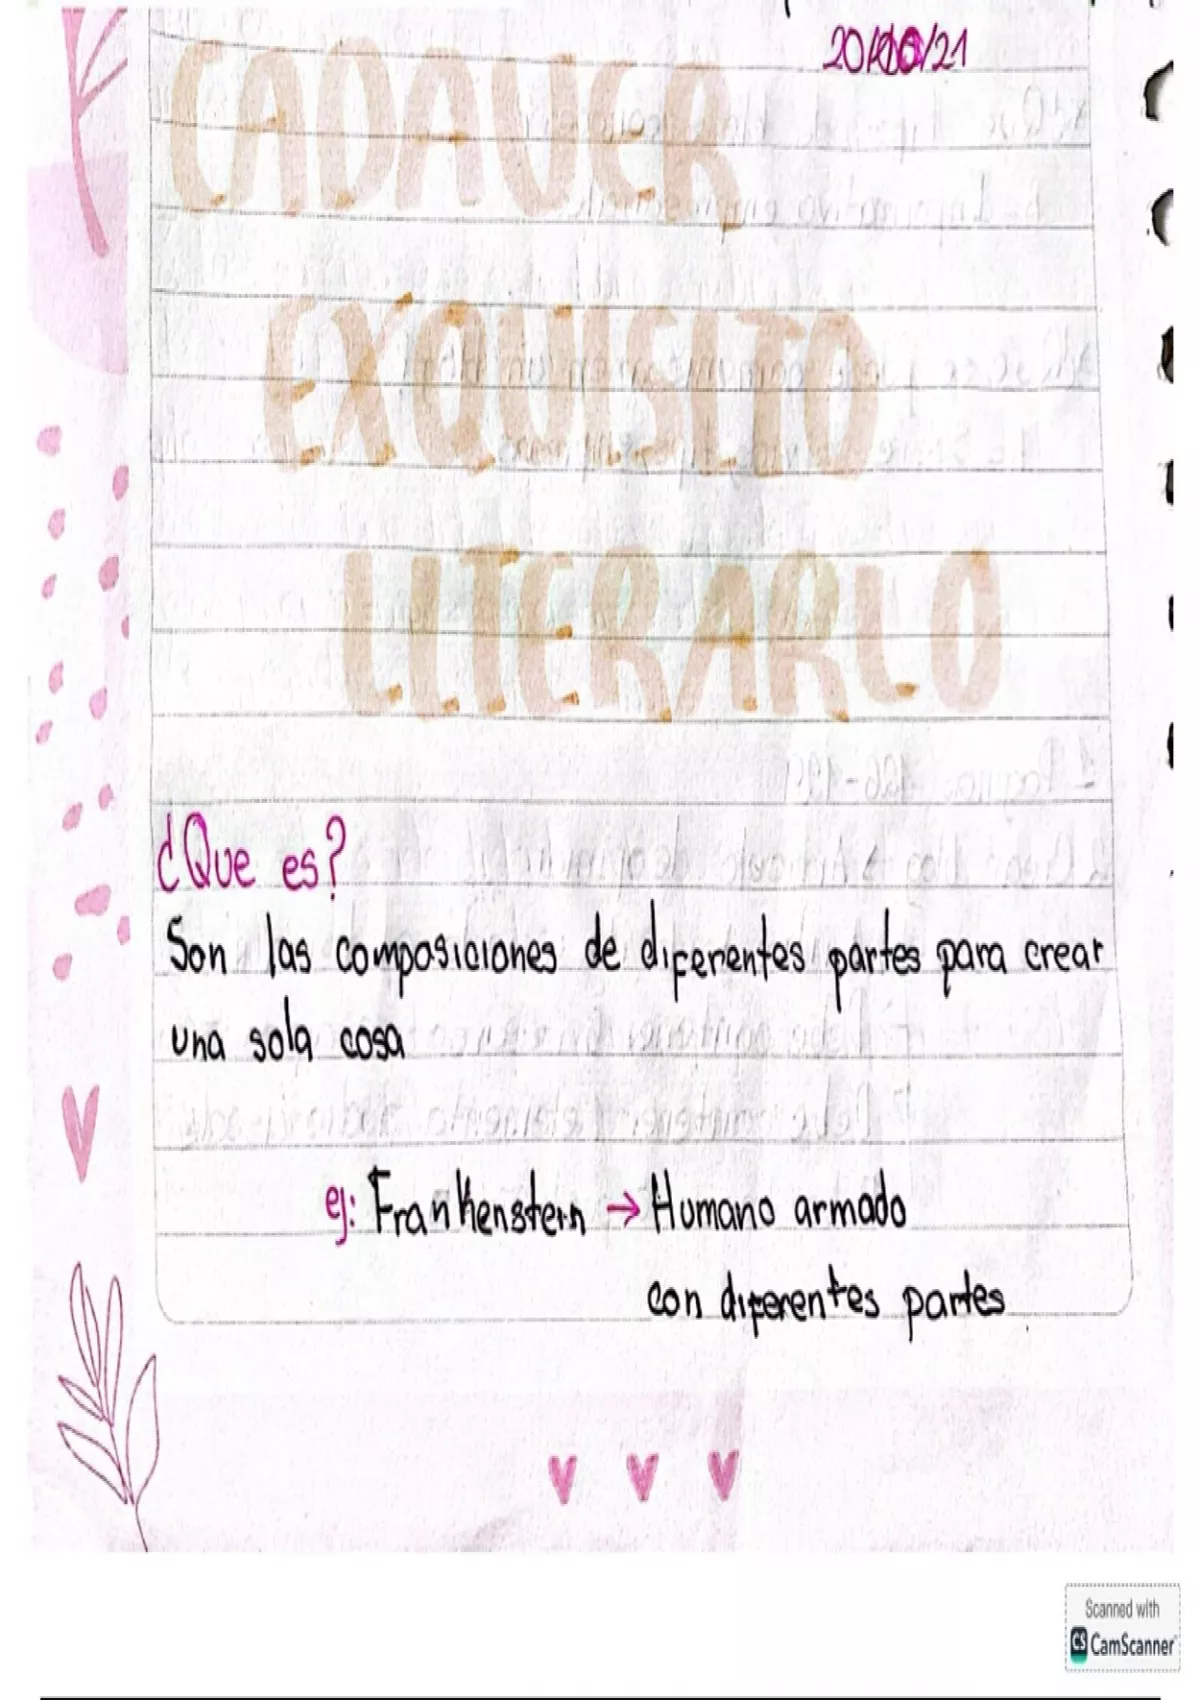 CADAVER
EXQUISITO
LITERARIO
¿Que es?
Son las composiciones de diferentes partes para crear
una sola cosa
ej: Frankenstein → Humano armado
con diferentes partes
Scanned with
CS CamScanner